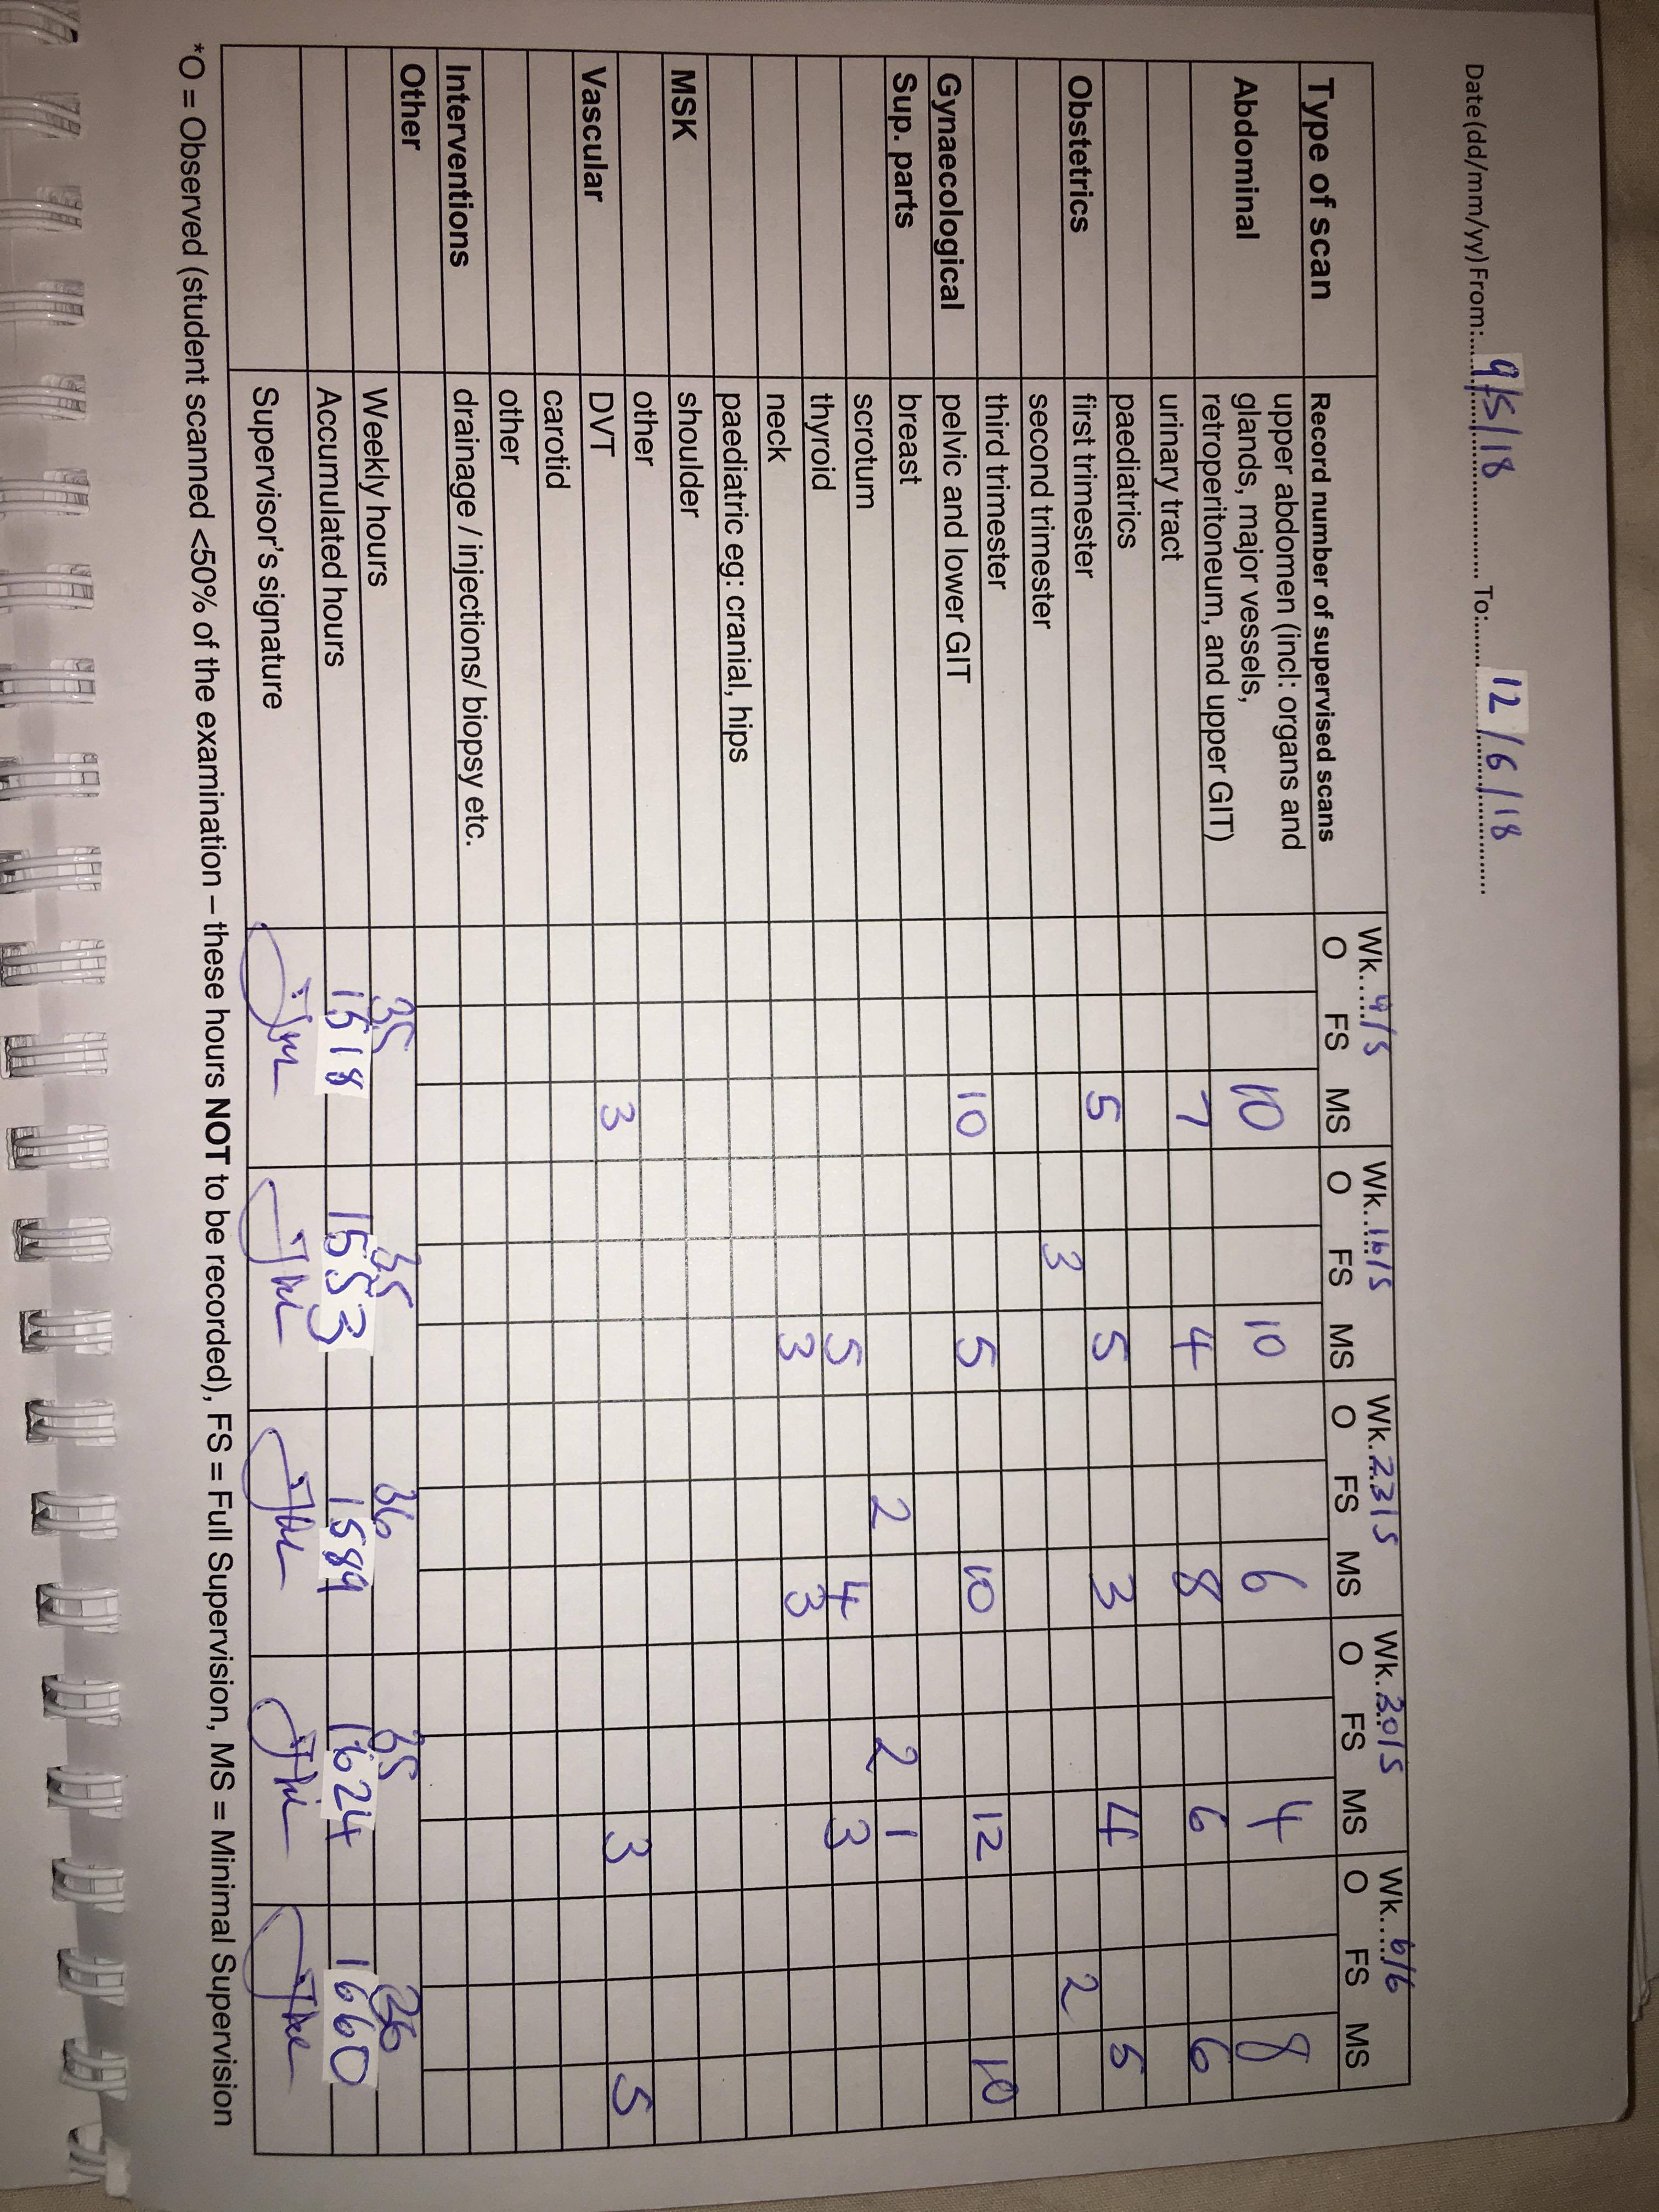 Date(dd/mm/yy) From: 9/5/18 To: 12/6/18
Wk 9/5 Wk 16/5 Wk 23/5 Wk 30/5 Wk 6/6
Type of scan Record number of supervised scans O FS MS O FS MS O FS MS O FS MS O FS MS
Abdominal upper abdomen (incl: organs and
glands, major vessels, 10 10 6 4 8
retroperitoneum, and upper GIT)
urinary tract 7 4 8 6 6
paediatrics
Obstetrics first trimester 5 5 3 4 5
second trimester 3 2
third trimester
Gynaecological pelvic and lower GIT 10 5 10 12 10
Sup. parts breast
scrotum 2 2 1
thyroid 5 4 3
neck 3 3
paediatric eg: cranial, hips
MSK shoulder
other
Vascular DVT 3 3 5
carotid
other
Interventions drainage / injections/ biopsy etc.
Other
Weekly hours 35 35 36 35 36
Accumulated hours 1518 1553 1589 1624 1660
Supervisor's signature
*O = Observed (student scanned <50% of the examination – these hours NOT to be recorded), FS = Full Supervision, MS = Minimal Supervision